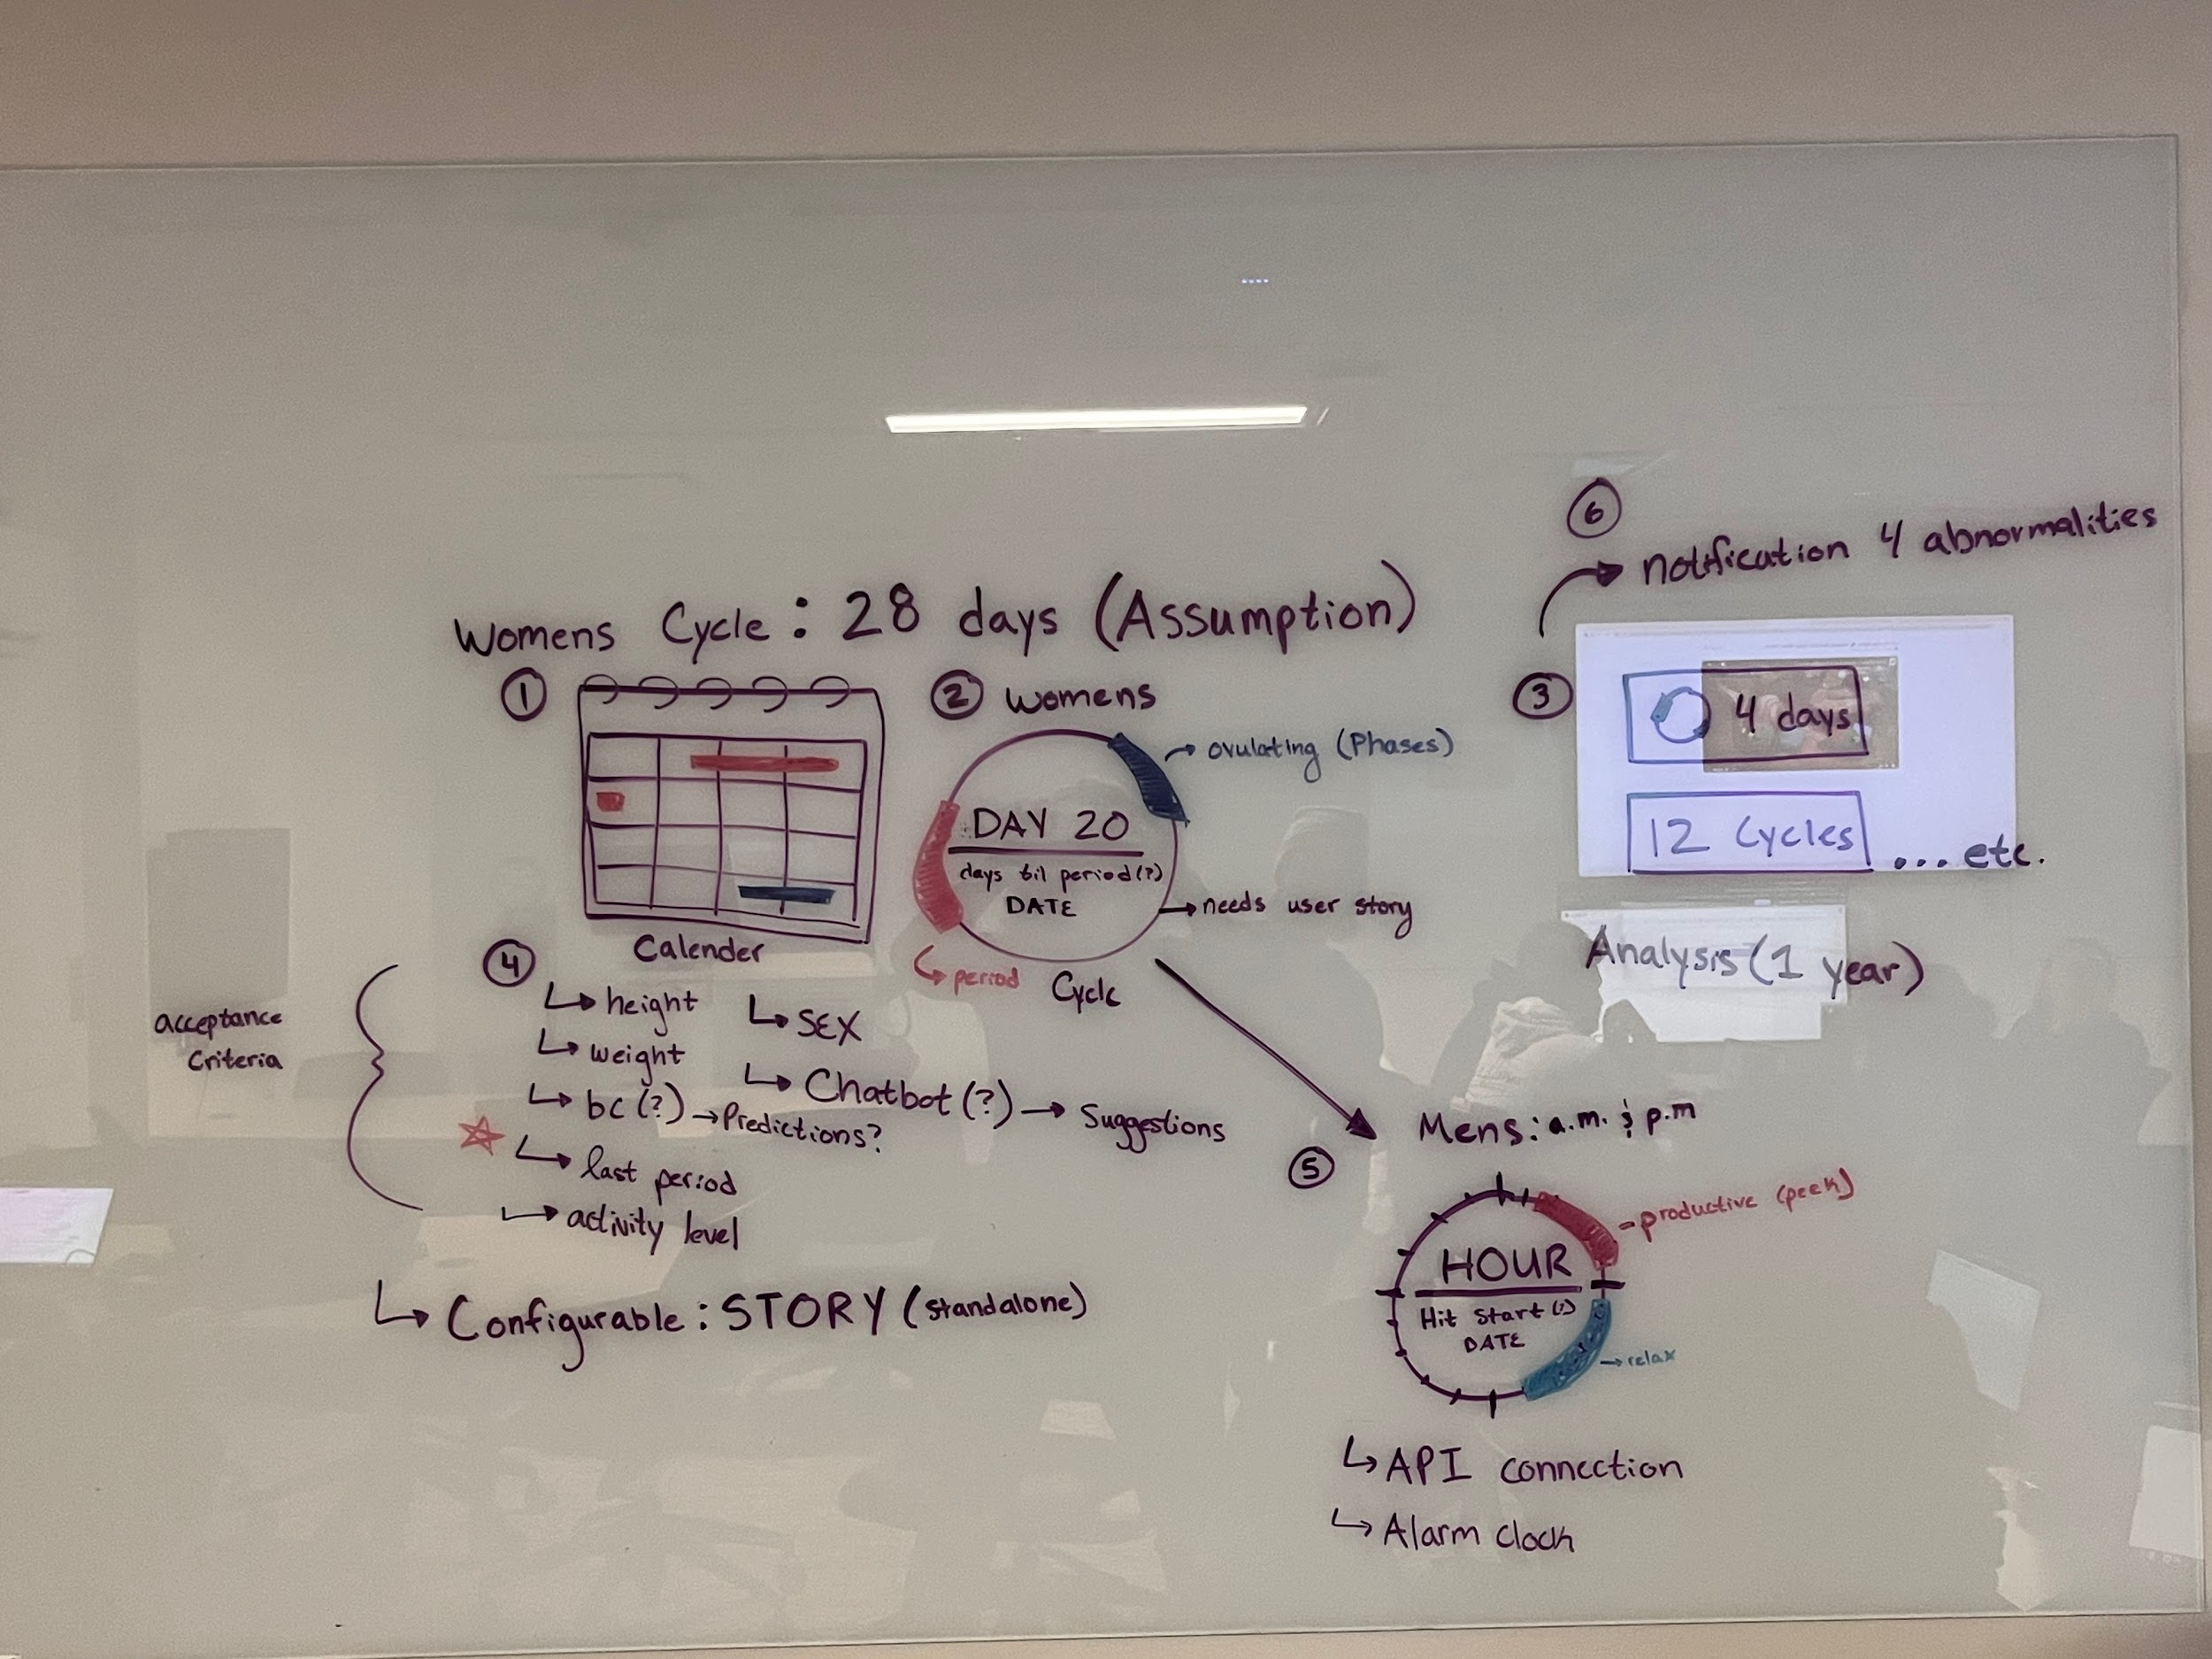 6
notification 4 abnormalities
Womens Cycle: 28 days (Assumption)
1
Calender
2 Womens
ovulating (Phases)
DAY 20
days til period(?)
DATE
needs user story
period
Cycle
3
4 days
12 Cycles
... etc.
Analysis (1 year)
acceptance
Criteria
4
height
weight
bc (?) → Predictions?
last period
activity level
SEX
Chatbot (?) → Suggestions
Configurable: STORY (standalone)
Mens: a.m. & p.m
5
productive (peek)
HOUR
Hit Start (?)
DATE
relax
API connection
Alarm clock